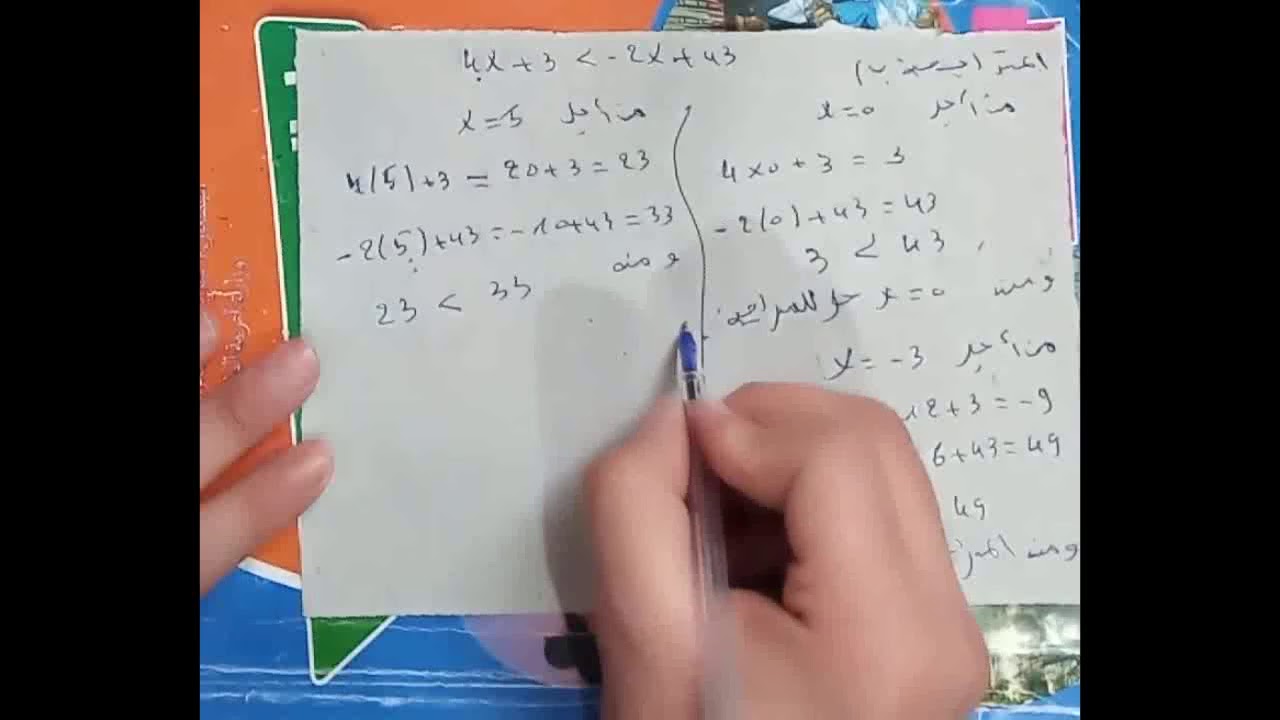 4x + 3 < -2x + 43
من أجل x = 0
4 x 0 + 3 = 3
-2(0) + 43 = 43
3 < 43
ومنه x = 0 حل للمتراجحة
من أجل x = -3
12 + 3 = -9
6 + 43 = 49
49
ومنه
من أجل x = 5
4(5) + 3 = 20 + 3 = 23
-2(5) + 43 = -10 + 43 = 33
ومنه
23 < 33